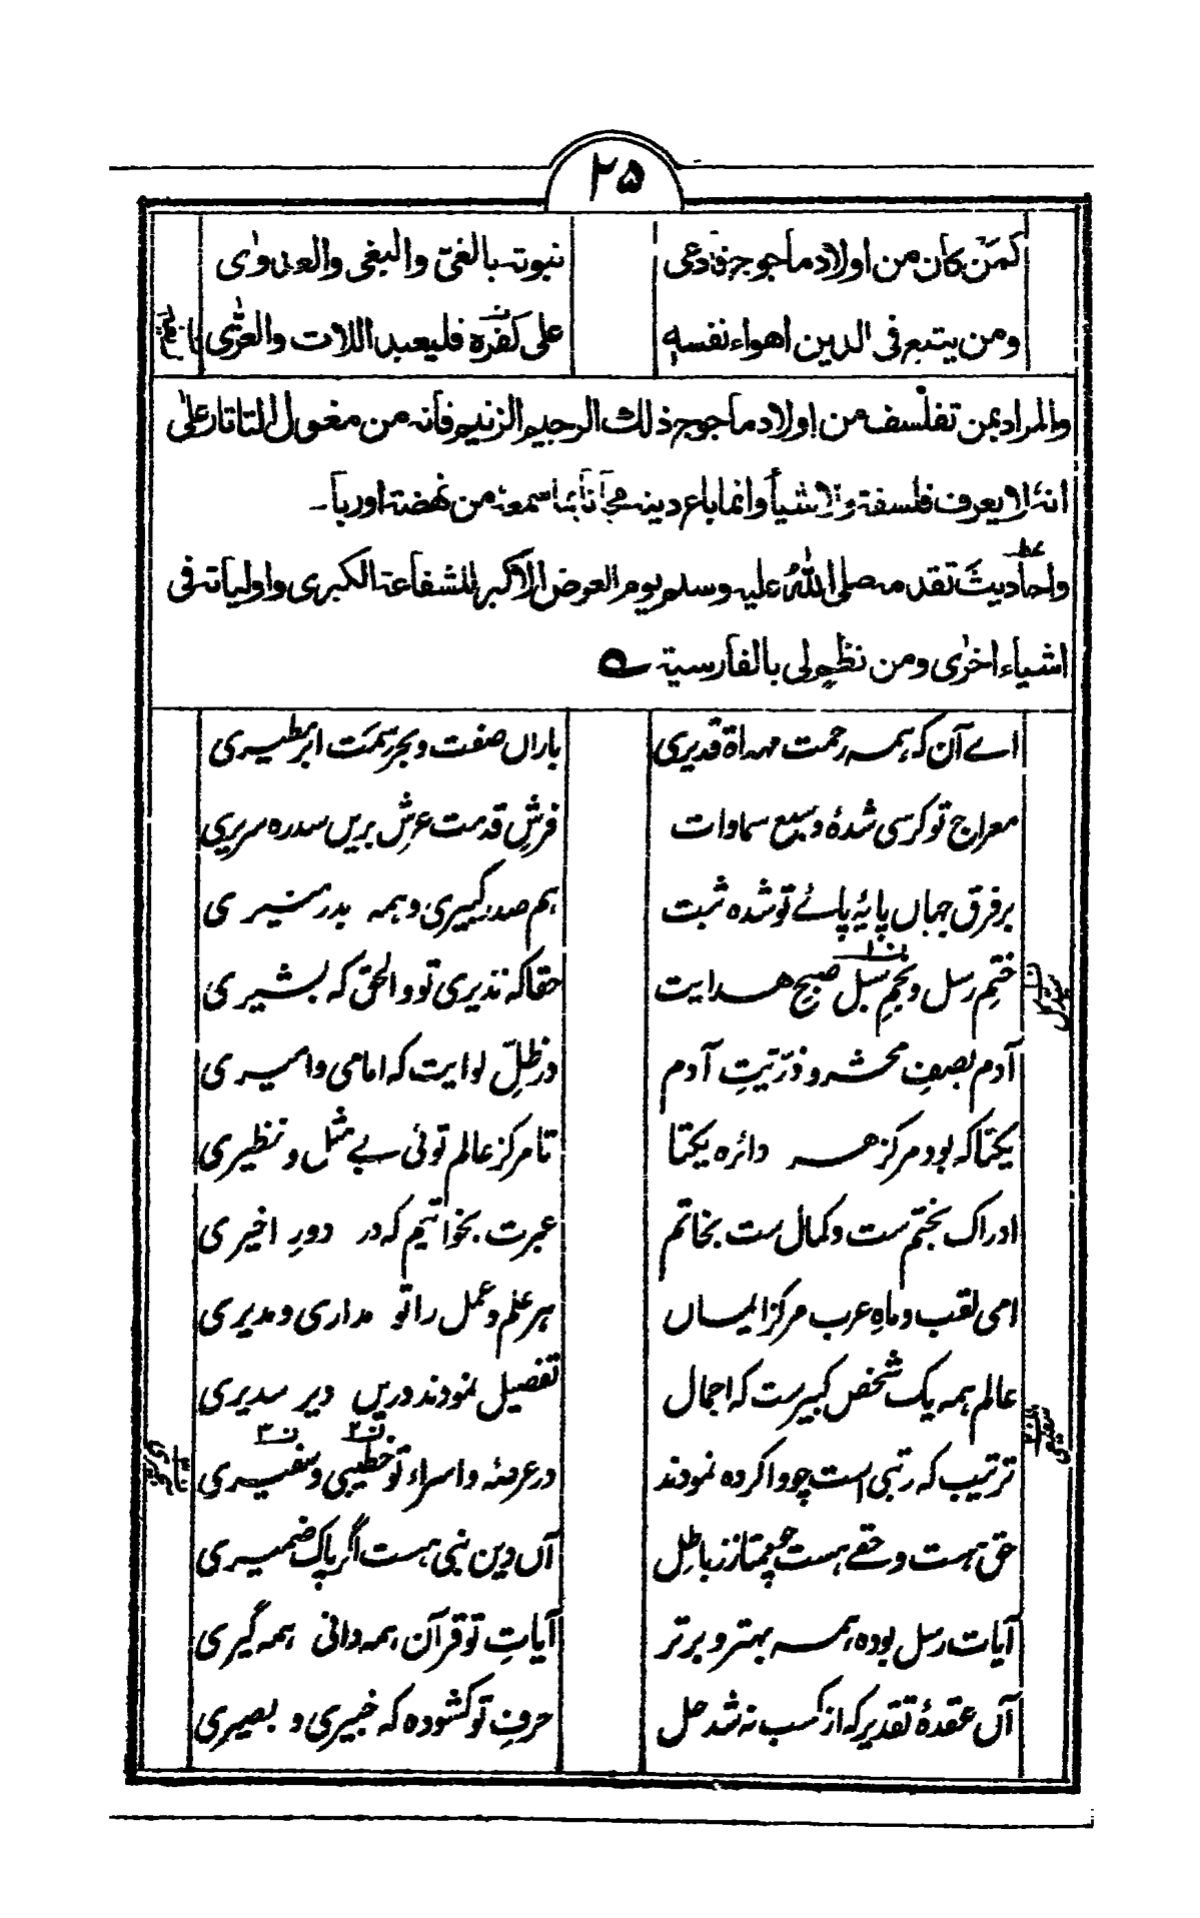 ۲۵
كمن كان من اولاد ماجوج فادعى نبوته بالغىّ والبغى والعدوٰى
ومن يتبع فى الدين اهواء نفسهٖ على كفره فليعبد اللات والعزّٰى
والمراد بمن تفلسف من اولاد ماجوج ذلك الرجيم الزنيم فانه من مغول التاتار علىٰ
انهٗ لا يعرف فلسفة ولا شيأ وانما باع دينه مجانا بما سمعه من نهضة اوربا۔
واحاديث تقدمه صلى اللهُ عليه وسلم يوم العرض الاكبر للشفاعة الكبرى واولياته فى
اشياء اخرٰى ومن نظمى لى بالفارسية ے
اے آن کہ ہمہ رحمت مہداۃ قدیری باراں صفت و بحر سمت ابر مطیری
معراج تو کرسی شدۂ و سبع سماوات فرشِ قدمت عرش بریں سدرہ سریری
بر فرق جہاں پایۂ پائے تو شدہ ثبت ہم صدر کبیری و ہمہ بدر منیری
ختمِ رسل و نجمِ سبل صبحِ ہدایت حقا کہ نذیری تو و الحق کہ بشیری
آدم بصفِ محشر و ذرّیتِ آدم در ظلِّ لوایت کہ امامی و امیری
یکتا کہ بود مرکز ہر دائرہ یکتا تا مرکز عالم توئی بے مثل و نظیری
ادراک بختم ست و کمال ست بخاتم عبرت بخواتیم کہ در دورِ اخیری
امی لقب و ماہِ عرب مرکز ایماں ہر علم و عمل را تو مداری و مدیری
عالم ہمہ یک شخص کبیرست کہ اجمال تفصیل نمودند دریں دیر سدیری
ترتیب کہ رتبی است چو وا کردہ نمودند در عرصۂ و اسراء تو خطیبی و سفیری
حق ہست و حقے ہست چو ممتاز ز باطل آں دین نبی ہست اگر پاک ضمیری
آیات رسل بودہ ہمہ بہتر و برتر آیاتِ تو قرآن ہمہ دانی ہمہ گیری
آں عقدۂ تقدیر کہ از کسب نہ شد حل حرفِ تو کشودہ کہ خبیری و بصیری